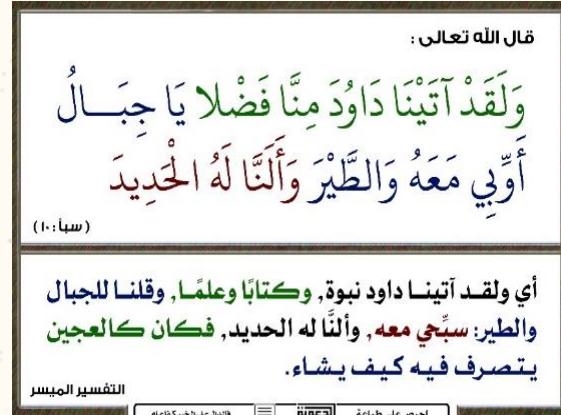 قال الله تعالى :
وَلَقَدْ آتَيْنَا دَاوُدَ مِنَّا فَضْلا يَا جِبَــالُ
أَوِّبِي مَعَهُ وَالطَّيْرَ وَأَلَنَّا لَهُ الْحَدِيدَ
( سبأ : ١٠ )
أي ولقـد آتينـا داود نبوة, وكتابًا وعلمًـا, وقلنـا للجبال
والطير: سبِّحي معه, وألنَّا له الحديد, فكان كالعجين
يتصرف فيه كيف يشاء.
التفسير الميسر